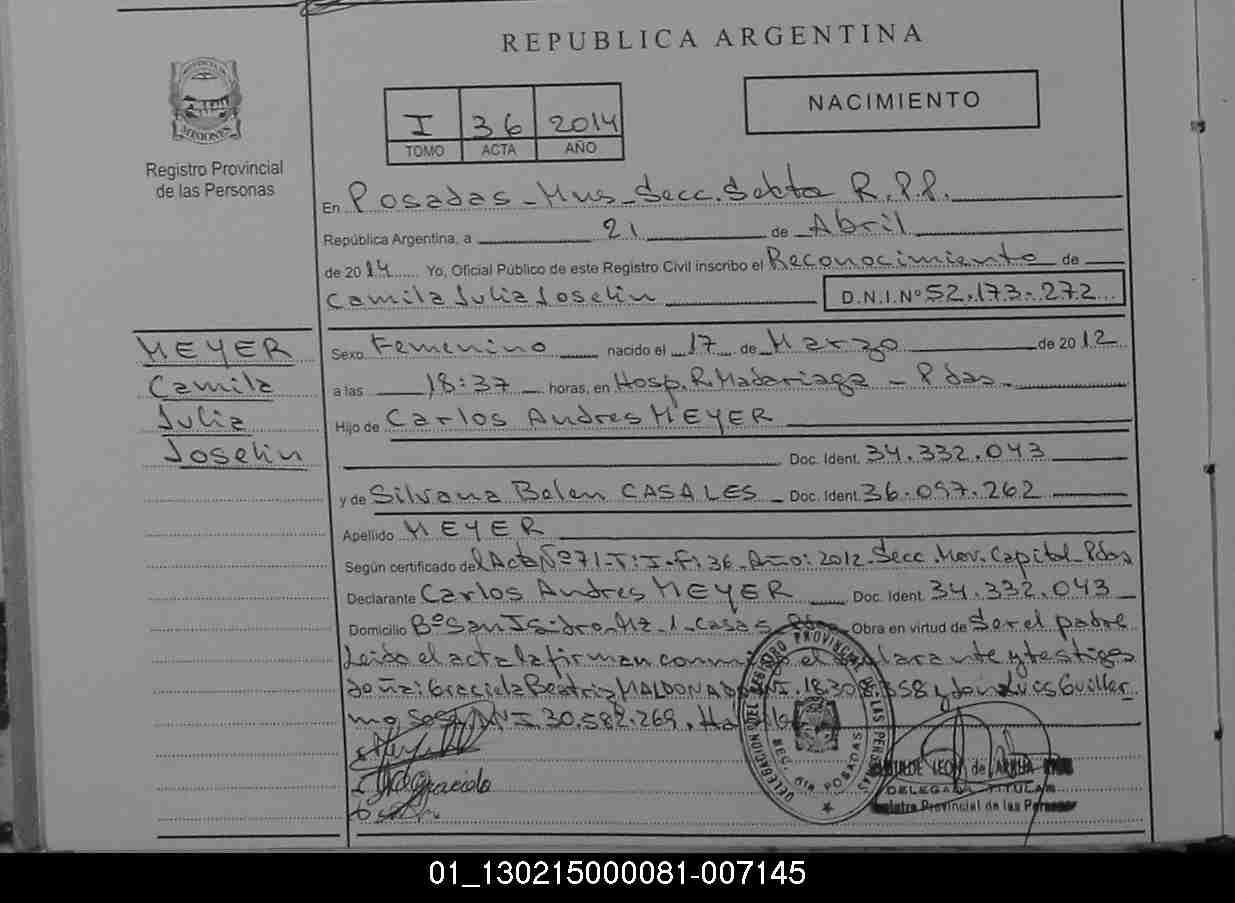 REPUBLICA ARGENTINA
PROVINCIA DE
MISIONES
Registro Provincial
de las Personas
I 36 2014
TOMO ACTA AÑO
NACIMIENTO
En Posadas - Mns - Secc. Sexta R.P.P.
República Argentina, a 21 de Abril
de 2014 Yo, Oficial Público de este Registro Civil inscribo el Reconocimiento de
Camila Julia Joselin D.N.I.Nº 52.173.272
MEYER
Camila
Julia
Joselin
Sexo Femenino nacido el 17 de Marzo de 2012
a las 18:37 horas, en Hosp. R. Madariaga - Pdas.
Hijo de Carlos Andres MEYER
Doc. Ident. 34.332.043
y de Silvana Belen CASALES Doc. Ident. 36.097.262
Apellido MEYER
Según certificado del Acta Nº 71-T: I-F: 36-Año: 2012-Secc. Mov. Capital-Pdas
Declarante Carlos Andres MEYER Doc. Ident. 34.332.043
Domicilio Bº San Isidro-Mz-1-Casa Obra en virtud de Ser el padre
Leida el acta la firman conmigo el declarante y testigos
doña: Graciela Beatriz MALDONADO y don Luis Guiller
mo Sosa DNI 30.582.269.
Graciela
DELEGACION DEL REGISTRO PROVINCIAL DE LAS PERSONAS
SEC. 6ta POSADAS
LEON de
DELEGADA TITULAR
Registro Provincial de las Personas
01_130215000081-007145